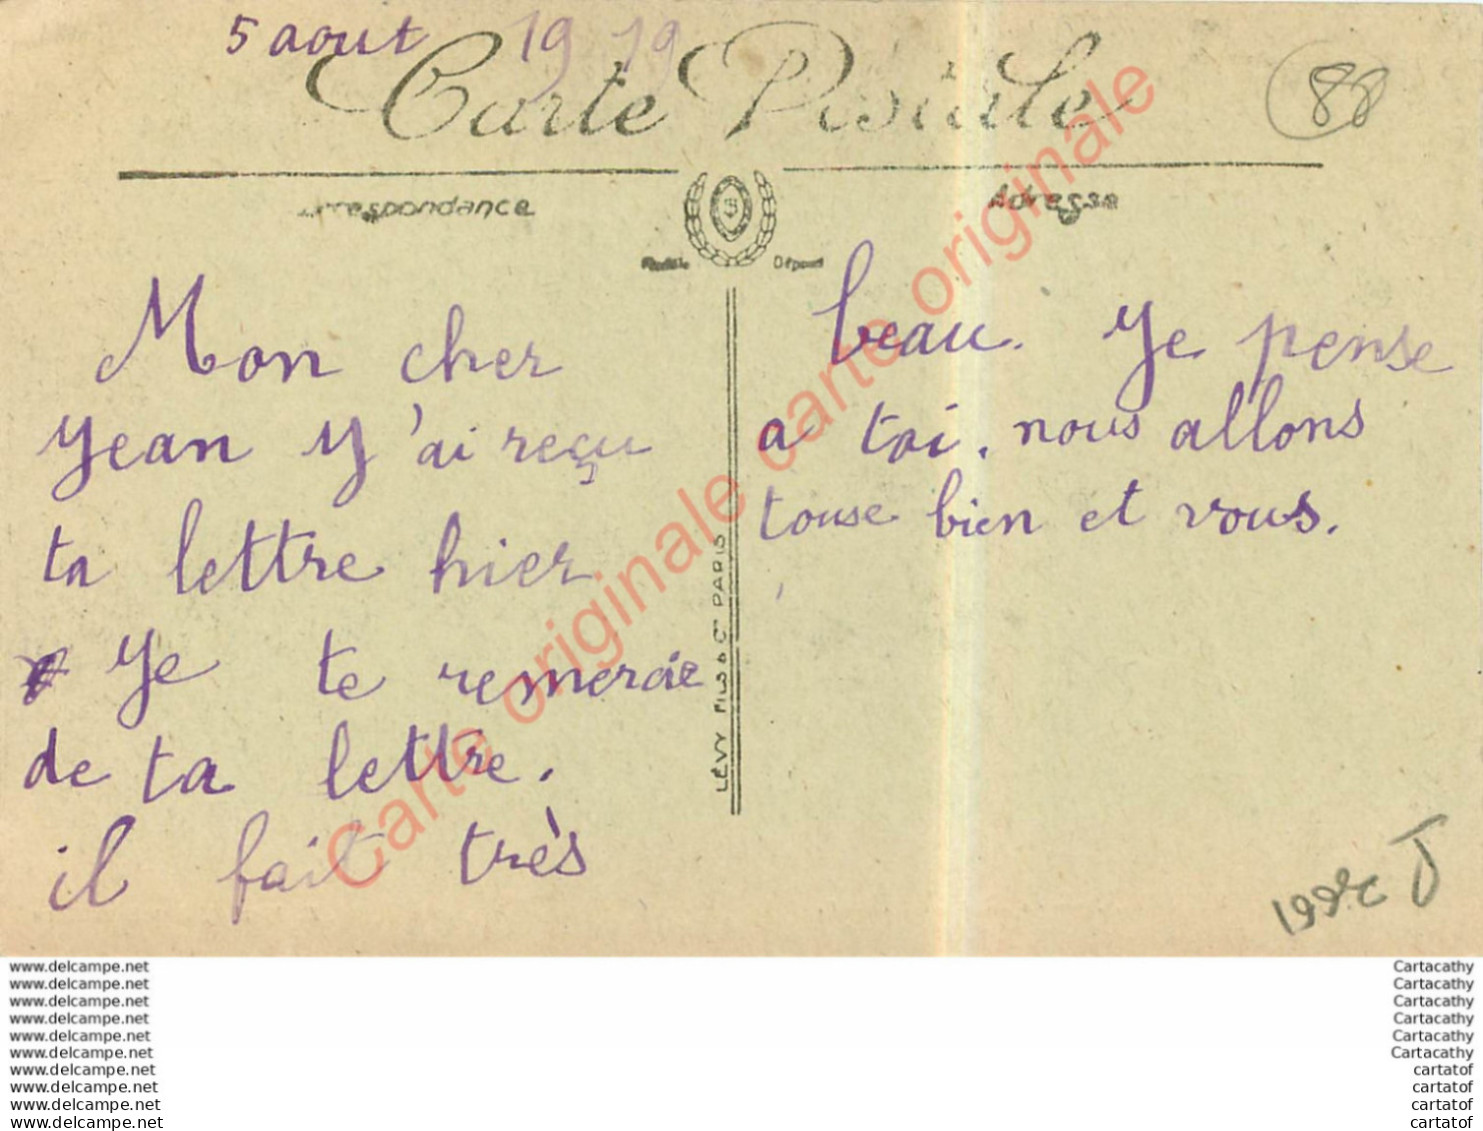 5 aout 1919
Carte Postale
88
Correspondance
Adresse
Modèle Déposé
Mon cher
Jean J'ai reçu
ta lettre hier
Je te remercie
de ta lettre.
il fait très
beau. Je pense
a toi. nous allons
touse bien et vous.
LÉVY FILS & Cie PARIS
Carte originale carte originale carte originale
www.delcampe.net
www.delcampe.net
www.delcampe.net
www.delcampe.net
www.delcampe.net
www.delcampe.net
www.delcampe.net
www.delcampe.net
www.delcampe.net
www.delcampe.net
Cartacathy
Cartacathy
Cartacathy
Cartacathy
Cartacathy
Cartacathy
cartatof
cartatof
cartatof
cartatof